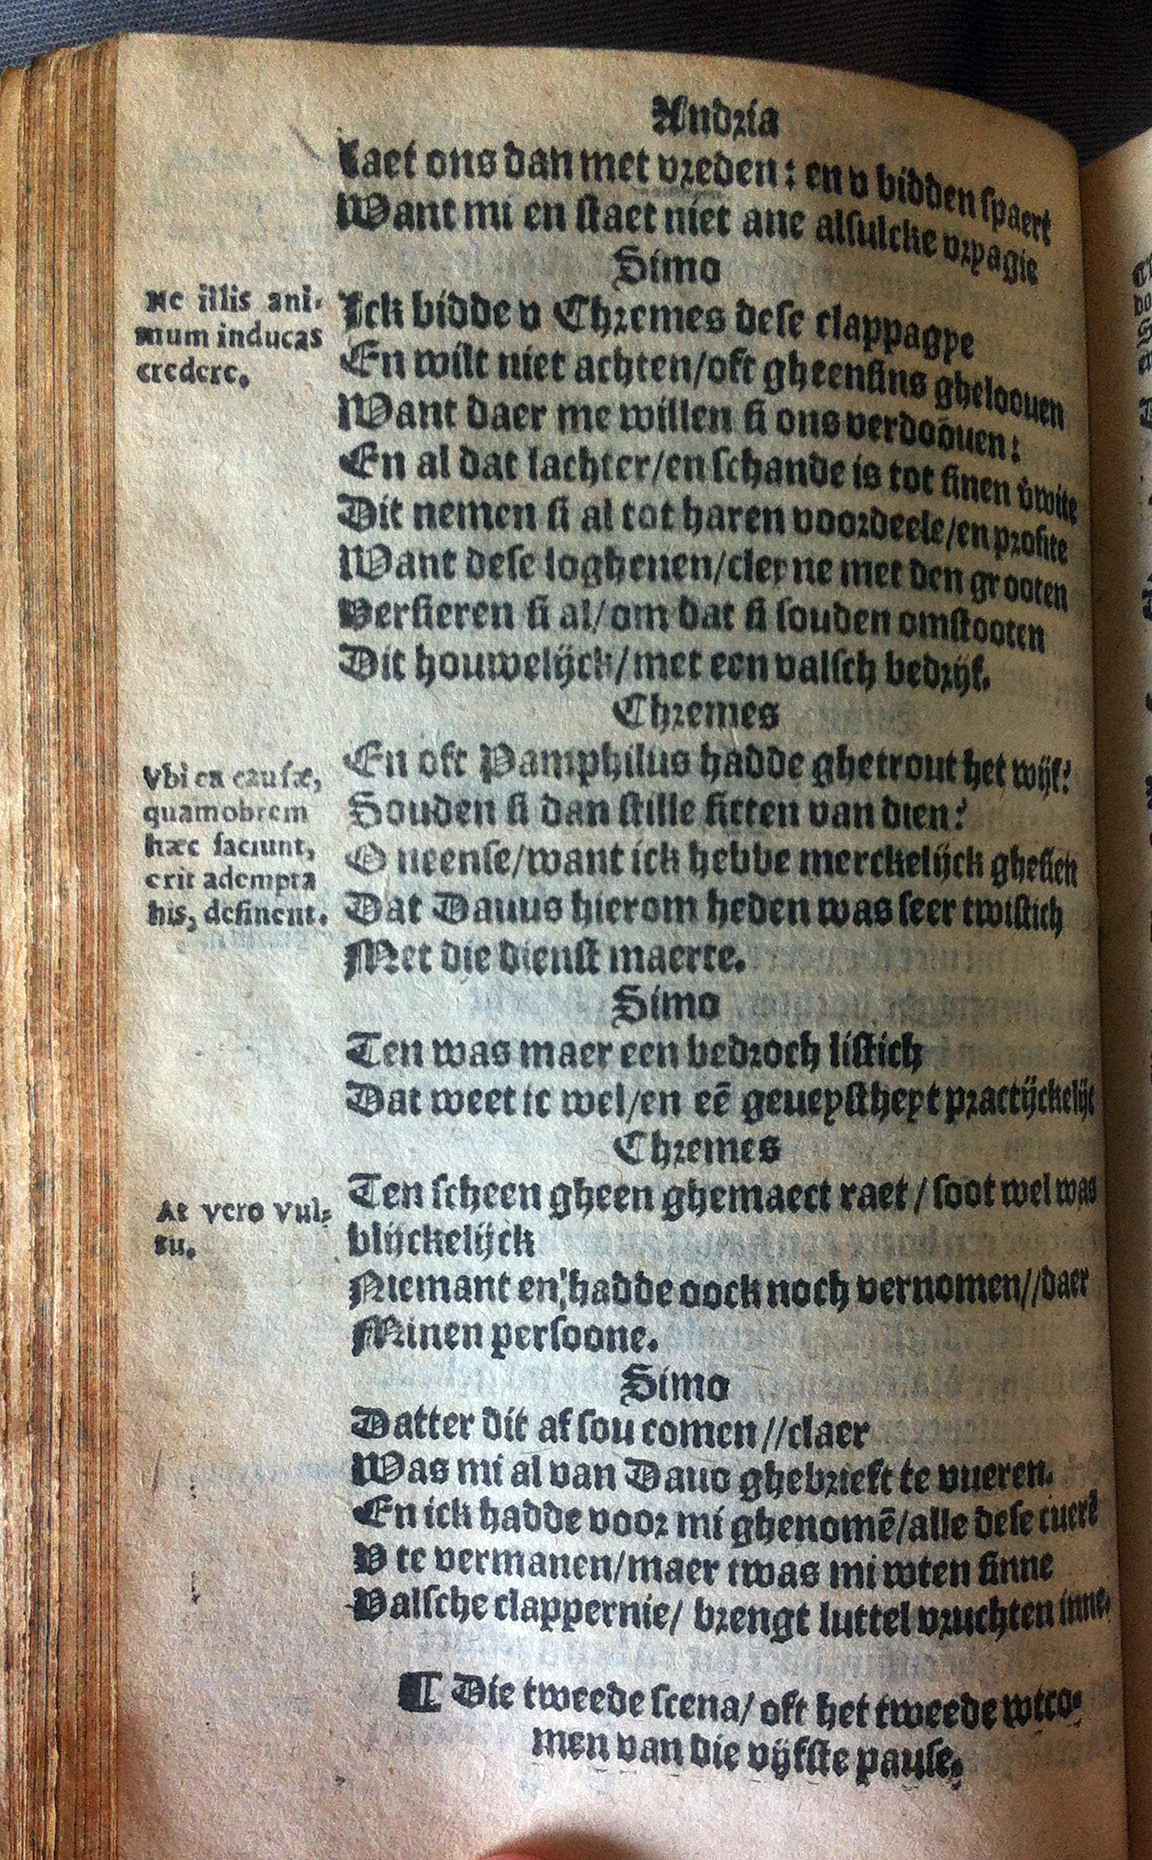 Andria
Laet ons dan met vreden: en v bidden spaert
Want mi en staet niet ane alsulcke vrpagie
Simo
Ne illis ani-
mum inducas
credere.
Ick bidde v Chremes dese clappagye
En wilt niet achten/oft gheensins gheloouen
Want daer me willen si ons verdoouen:
En al dat lachter/en schande is tot sinen v̄wite
Dit nemen si al tot haren voordeele/en profite
Want dese loghenen/cleyne met den grooten
Versieren si al/om dat si souden omstooten
Dit houwelijck/met een valsch bedrijf.
Chremes
Vbi ea causæ,
quamobrem
hæc faciunt,
erit adempta
his, desinent.
En oft Pamphilus hadde ghetrout het wijf?
Souden si dan stille sitten van dien?
O neense/want ick hebbe merckelijck ghesien
Dat Dauus hierom heden was seer twistich
Met die dienst maerte.
Simo
Ten was maer een bedroch listich
Dat weet ic wel/en eē geueystheyt practijckelijc
Chremes
At vero vul-
tu.
Ten scheen gheen ghemaect raet / soot wel was
blijckelijck
Niemant en hadde oock noch vernomen//daer
Minen persoone.
Simo
Datter dit af sou comen//claer
Was mi al van Dauo ghebrieft te vueren.
En ick hadde voor mi ghenomē/alle dese cuerē
V te vermanen/maer twas mi wten sinne
Valsche clappernie/ brengt luttel vruchten inne.
¶ Die tweede scena/ oft het tweede wtco-
men van die vijfste pause.